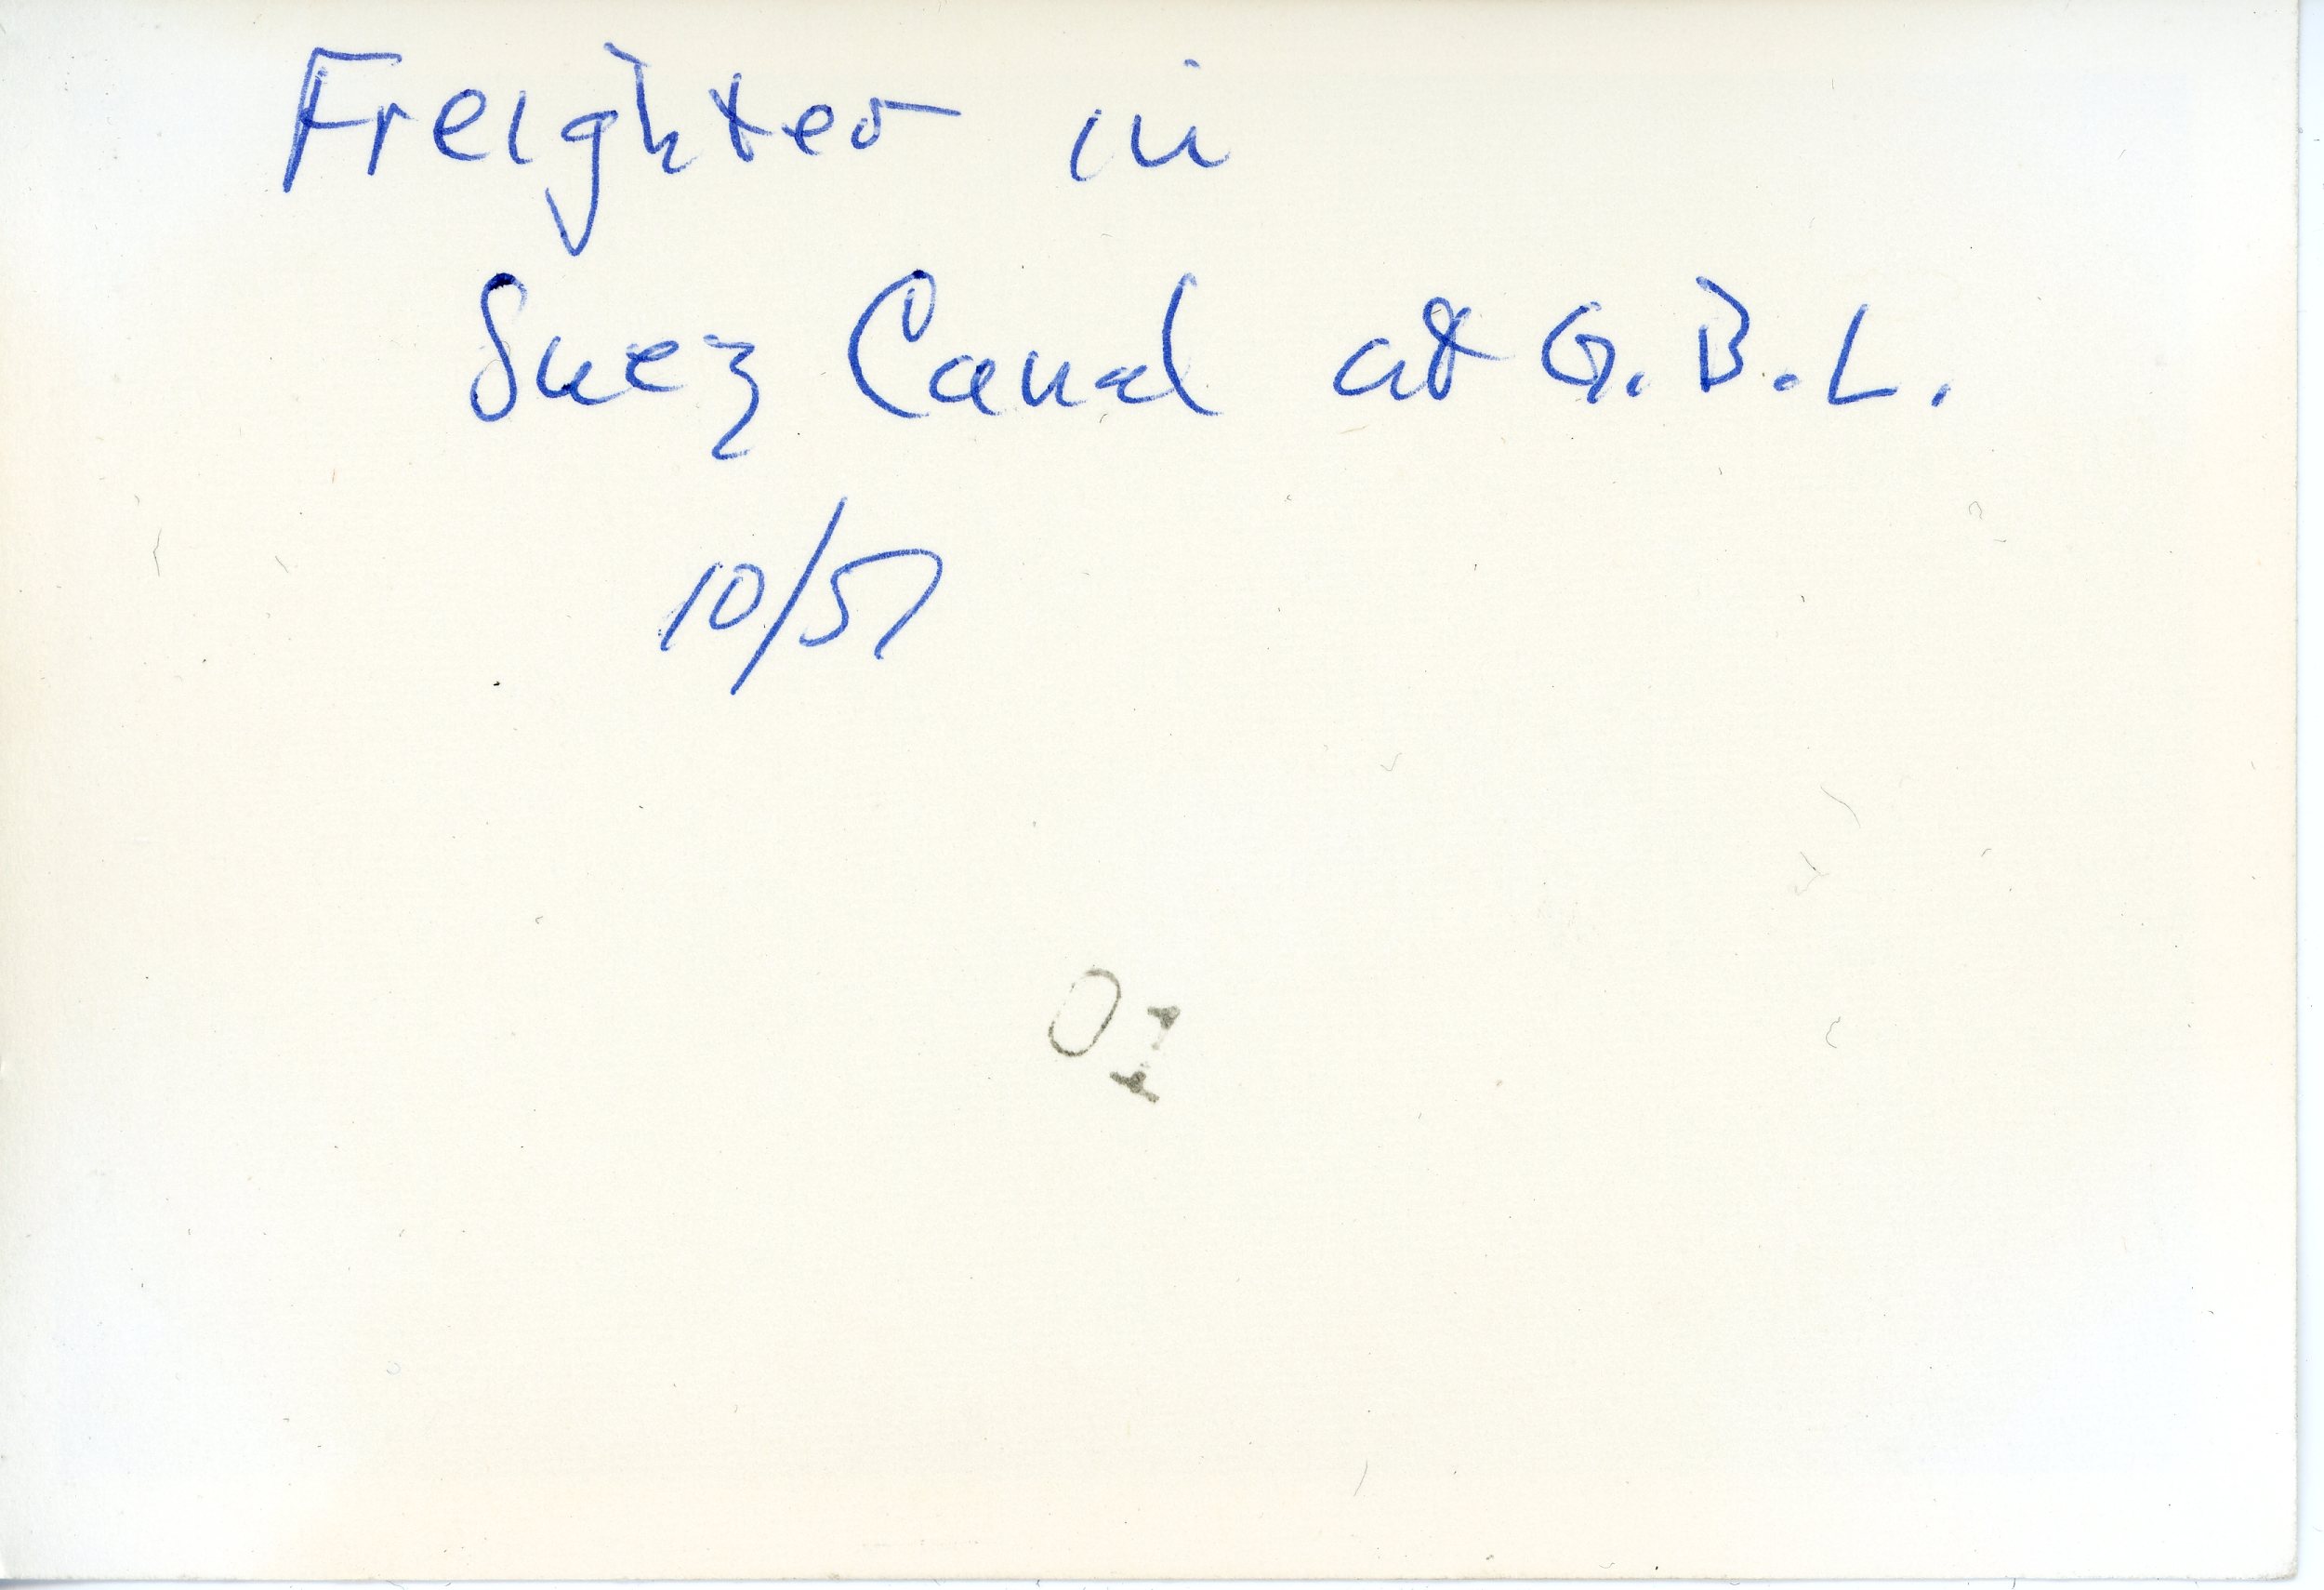 Freighter in
Suez Canal at G.B.L.
10/57
01